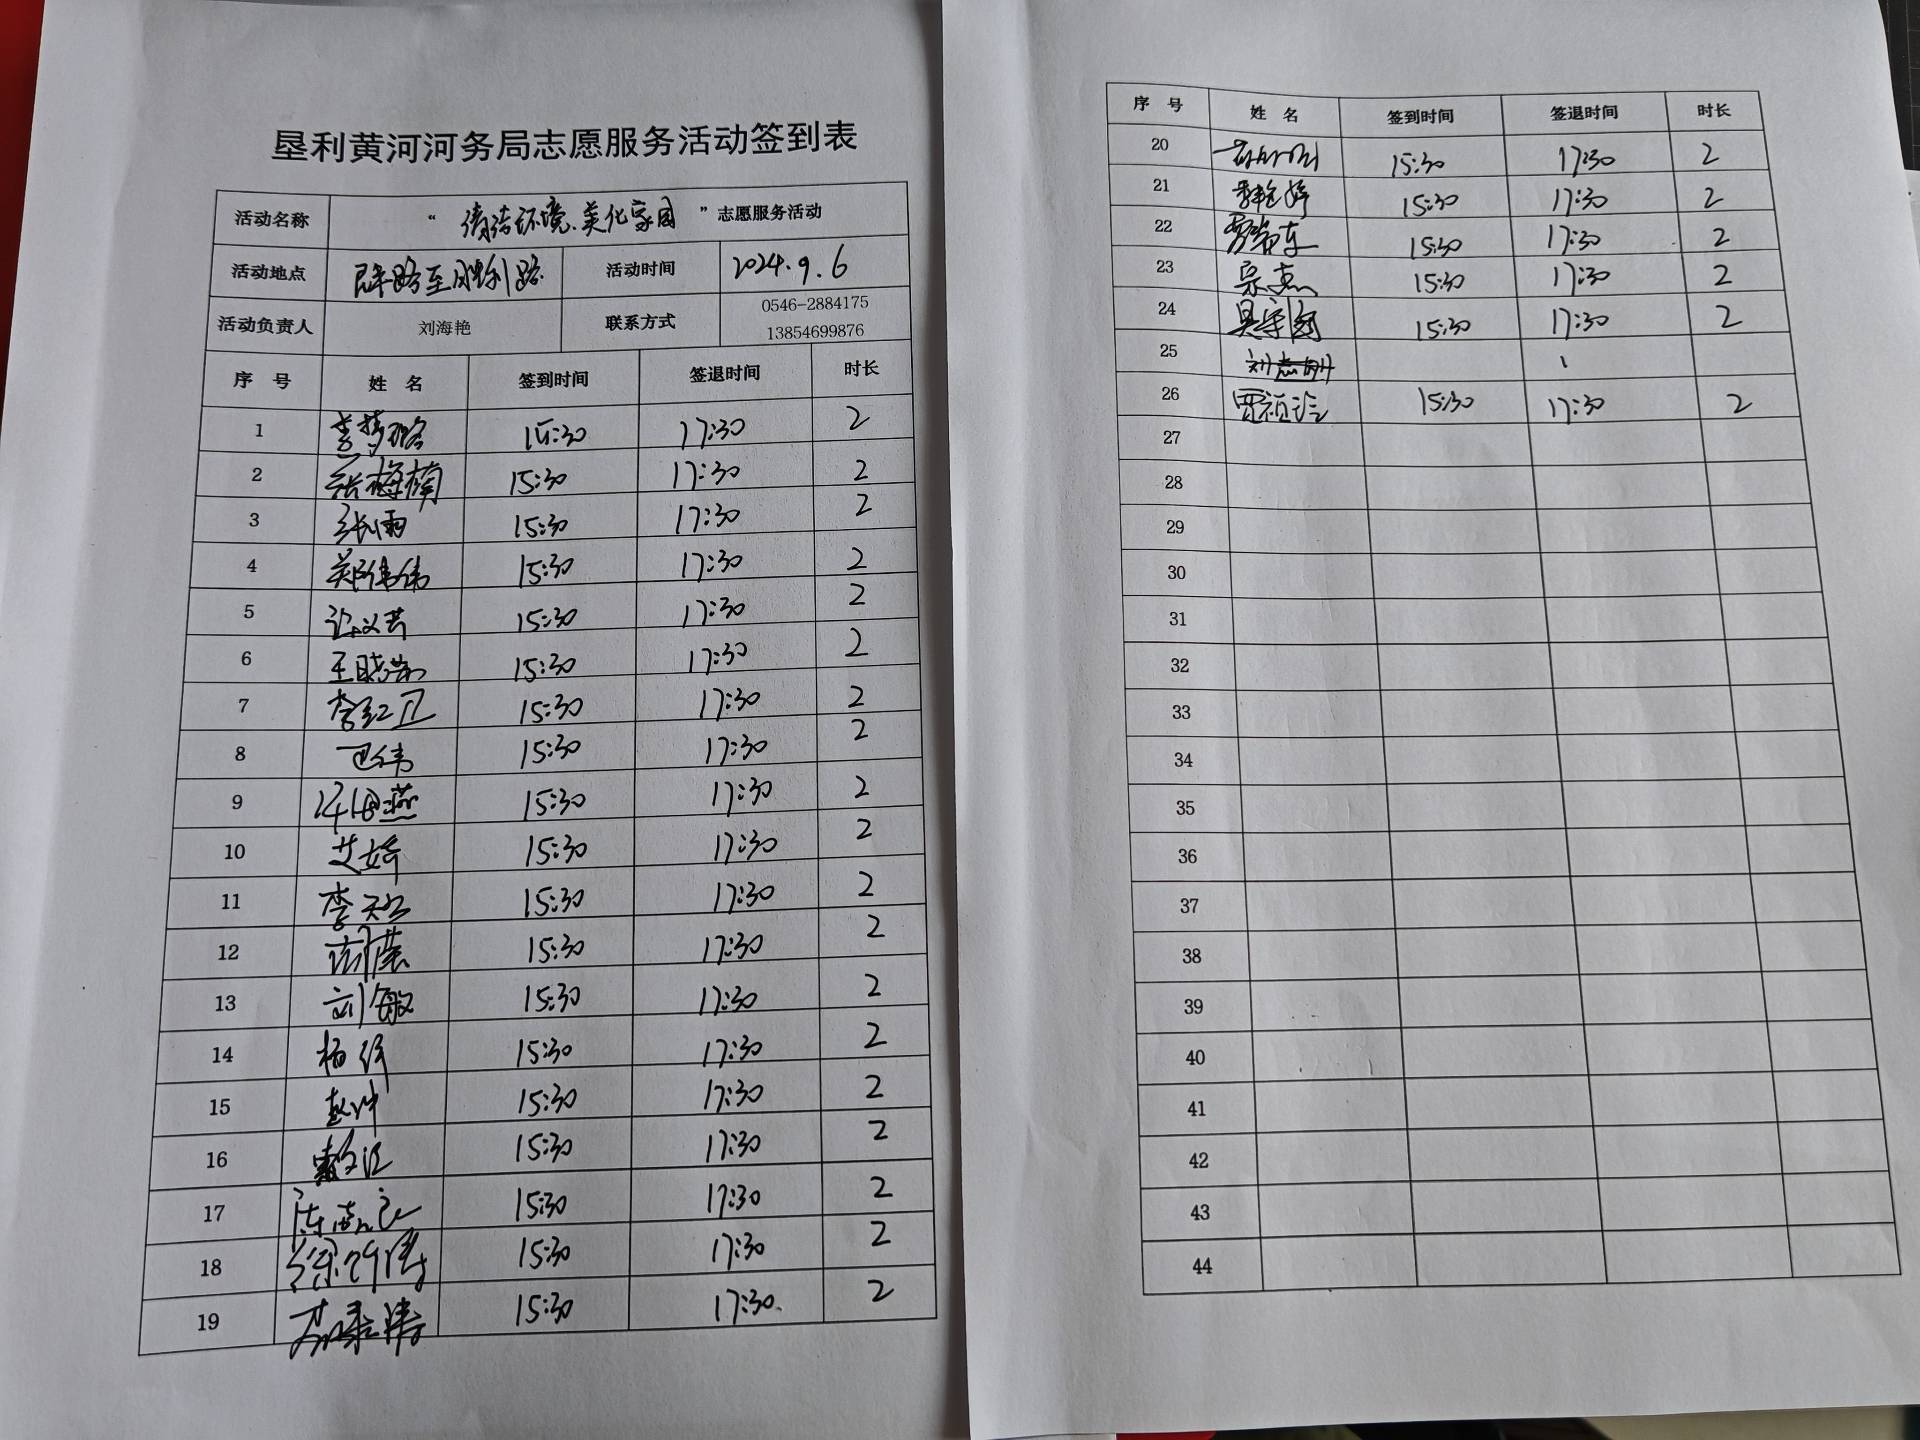 垦利黄河河务局志愿服务活动签到表
活动名称 “清洁环境、美化家园”志愿服务活动
活动地点 路至胜利路 活动时间 2024.9.6
活动负责人 刘海艳 联系方式 0546-2884175
13854699876
序 号 姓 名 签到时间 签退时间 时长
1 李梦璐 15:30 17:30 2
2 张梅楠 15:30 17:30 2
3 张雨 15:30 17:30 2
4 郑伟伟 15:30 17:30 2
5 15:30 17:30 2
6 15:30 17:30 2
7 李红卫 15:30 17:30 2
8 巴伟 15:30 17:30 2
9 15:30 17:30 2
10 艾娇 15:30 17:30 2
11 15:30 17:30 2
12 15:30 17:30 2
13 刘敏 15:30 17:30 2
14 15:30 17:30 2
15 赵冲 15:30 17:30 2
16 15:30 17:30 2
17 15:30 17:30 2
18 15:30 17:30 2
19 15:30 17:30 2
序 号 姓 名 签到时间 签退时间 时长
20 15:30 17:30 2
21 15:30 17:30 2
22 15:30 17:30 2
23 15:30 17:30 2
24 15:30 17:30 2
25
26 15:30 17:30 2
27
28
29
30
31
32
33
34
35
36
37
38
39
40
41
42
43
44